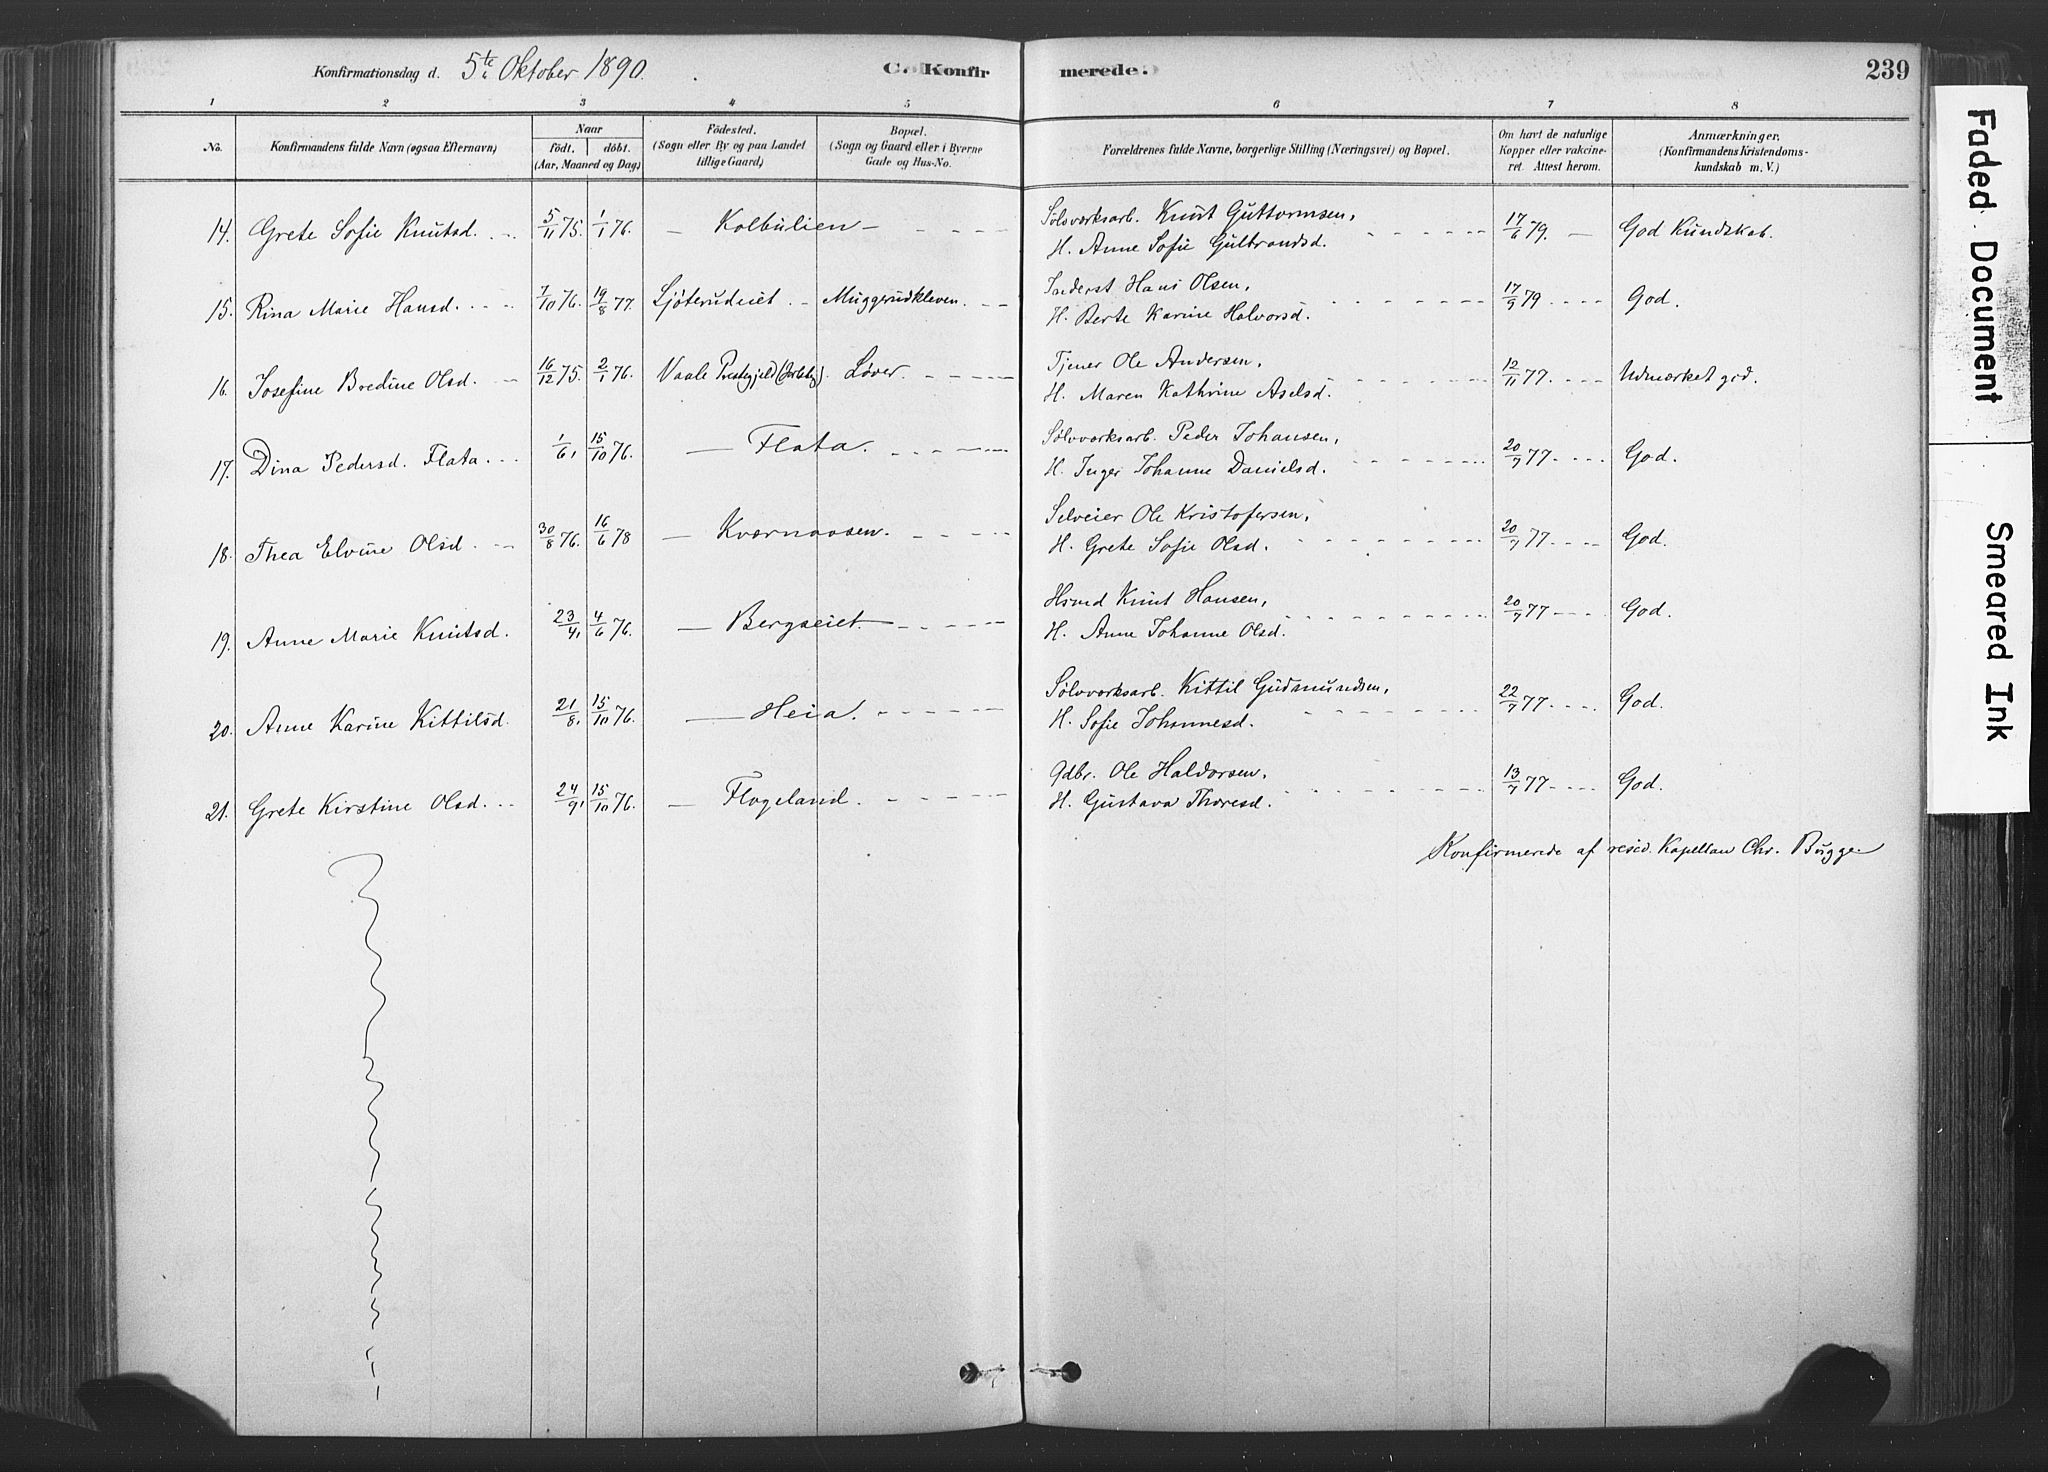 Konfirmationsdag d. 5te Oktober 1890. C. Konfirmerede. 239
1 2 3 4 5 6 7 8
No. Konfirmandens fulde Navn (ogsaa Efternavn) Naar födt. döbt. (Aar, Maaned og Dag) Födested. (Sogn eller By og paa Landet tillige Gaard) Bopæl. (Sogn og Gaard eller i Byerne Gade og Hus-No. Forældrenes fulde Navne, borgerlige Stilling (Næringsvei) og Bopæl. Om havt de naturlige Kopper eller vakcineret. Attest herom. Anmærkninger. (Konfirmandens Kristendomskundskab m. V.)
14. Grete Sofie Knutsd. 5/11 75. 1/1 76. Kolbulien Sølvværksarb. Knut Guttormsen, H. Anne Sofie Gulbrandsd. 17/6 79. God Kundskab.
15. Rina Marie Hansd. 7/10 76. 19/8 77. Sjøterudeiet Muggerudkleven. Inderst Hans Olsen, H. Berte Karine Halvorsd. 17/9 79 God.
16. Josefine Bredine Olsd. 16/12 75. 2/1 76. Vaale Prestegjeld (Jarlsbg). Løver. Tjener Ole Andersen, H. Maren Kathrine Axelsd. 12/11 77. Udmærket god.
17. Dina Pedersd. Flata. 1/6, 15/10 76. Flata. Sølvværksarb. Peder Johansen, H. Inger Johanne Danielsd. 20/7 77. God.
18. Thea Elvine Olsd. 30/8 76. 16/6 78 Kværnaasen. Selveier Ole Kristofersen, H. Grete Sofie Olsd. 20/7 77. God.
19. Anne Marie Knutsd. 23/4, 4/6 76. Bergseiet. Hsmd Knut Hansen, H. Anne Johanne Olsd. 20/7 77. God.
20. Anne Karine Kittilsd. 21/8, 15/10 76. Heia. Sølvværksarb. Kittil Gudmundsen, H. Sofie Johannesd. 22/7 77. God.
21. Grete Kirstine Olsd. 24/9, 15/10 76. Flogeland. Gdbr. Ole Haldorsen, H. Gustava Thoresd. 13/7 77. God.
Konfirmerede af resid. Kapellan Chr. Bugge.
Faded Document
Smeared Ink